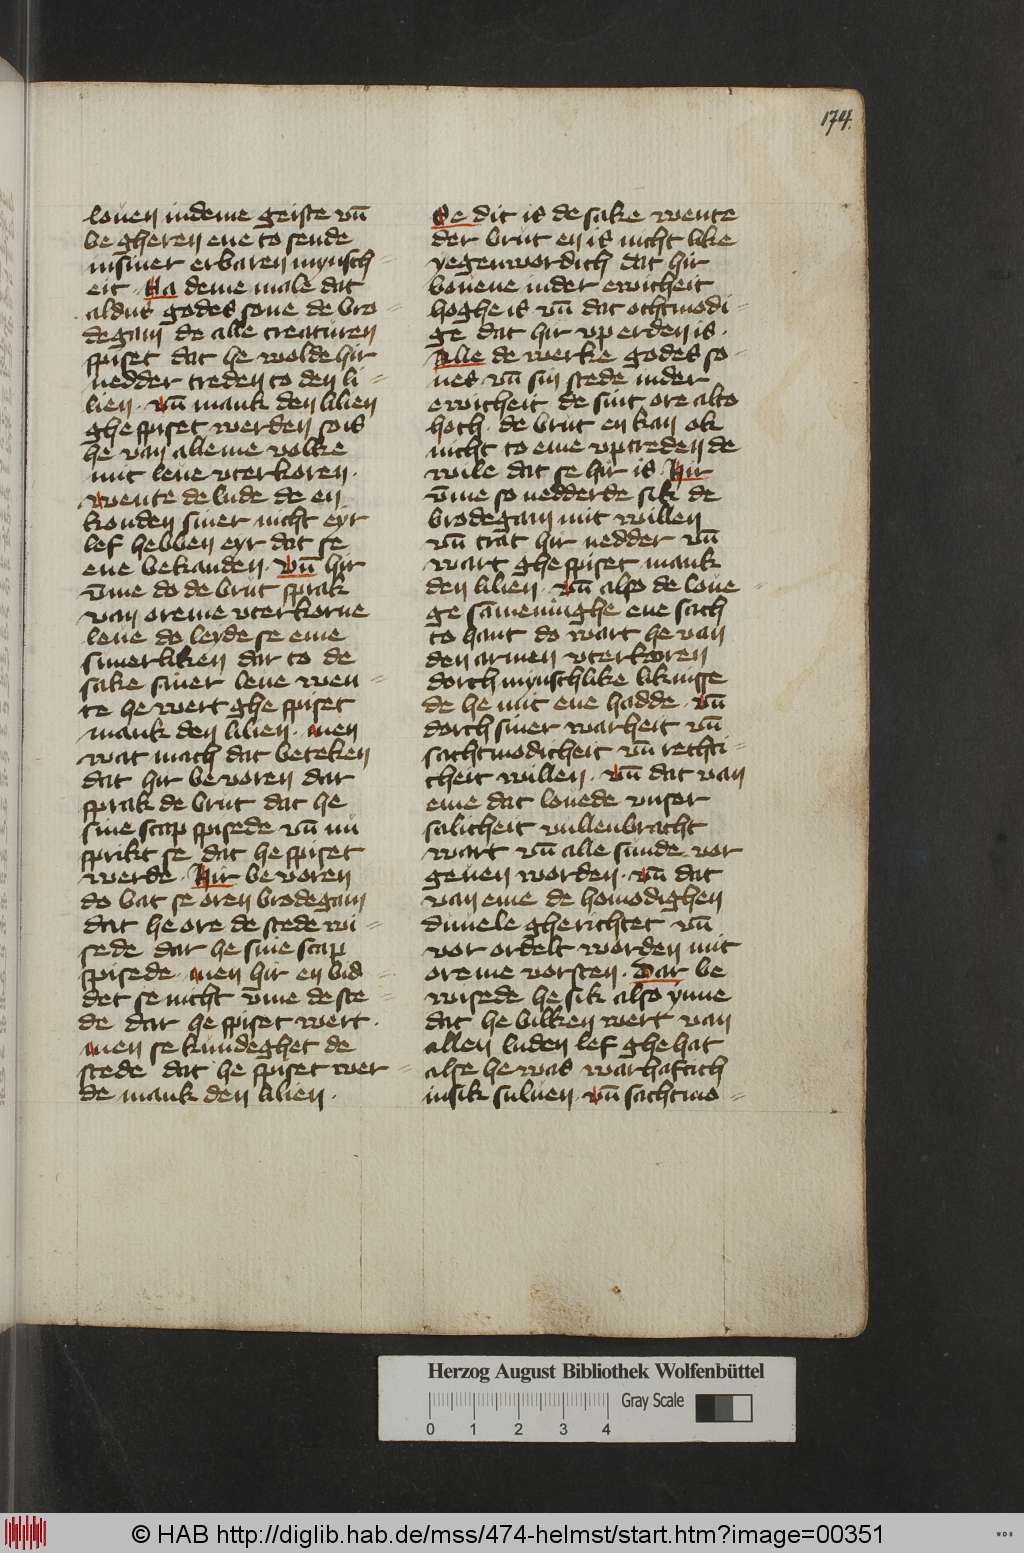 174.
louen indeme geiste vn̄
be gheren ene to sende
insiner erbaren mynsch
eit. Na deme male dat
aldus godes sone de bro-
degam de alle creaturen
spiset dat he wolde hir
nedder treden to den li-
lien. vn̄ mank den lilien
ghe spiset werden so is
he van alleme volke
mit leue vterkoren.
wente de lude de en
konden siner nicht eyr
lef hebben eyr dat se
ene bekanden. vn̄ hir
v̄me do de brut sprak
van oreme vterkorne
leue do leyde se eme
sinerliken dar to de
sake siner leue wen-
te he wert ghe spiset
mank den lilien. men
wat mach dat beteken
dat hir be voren dar
sprak de brut dat he
sine scap spisede vn̄ nu
sprikt se dat he spiset
werde. Hir be voren
do bat se oren brodegam
dat he ore de stede wi-
sede dar he sine scap
spisede. men hir en bid-
det se nicht v̄me de ste-
de dar he spiset wert.
men se kundeghet de
stede dat he spiset wer-
de mank den lilien.
Se dit is de sake wente
der brut en is nicht like
yegenwordich dat hir
bouene inder ewicheit
hoghe is vn̄ dat othmodi-
ge dat hir vp erden is.
Alle de werke godes so-
nes vn̄ sin stede inder
ewicheit de sint ore alto
hoch. de brut en kan ok
nicht to eme vptreden de
wile dat se hir is. Hir
v̄me so nedderde sik de
brodegam mit willen
vn̄ trat hir nedder vn̄
wart ghe spiset mank
den lilien. vn̄ also de loue-
ge sāmeninghe ene sach
to hant do wart he van
den armen vterkoren
dorch mynschlike liknisse
de he mit ene hadde. vn̄
dorch siner warheit vn̄
sachtmodicheit vn̄ rechti-
cheit willen. vn̄ dat van
eme dat louede vnser
salicheit vullenbracht
wart vn̄ alle sunde vor
geuen worden. vn̄ dat
van eme de homodighen
duuele gherichtet vn̄
vor ordelt worden mit
oreme vorsten. Dar be
wisede he sik also ynne
dat he billken wert van
allen luden lef ghe hat
alse he was warhaftich
insik suluen. vn̄ sachtmo-
Herzog August Bibliothek Wolfenbüttel
Gray Scale
0 1 2 3 4
© HAB http://diglib.hab.de/mss/474-helmst/start.htm?image=00351